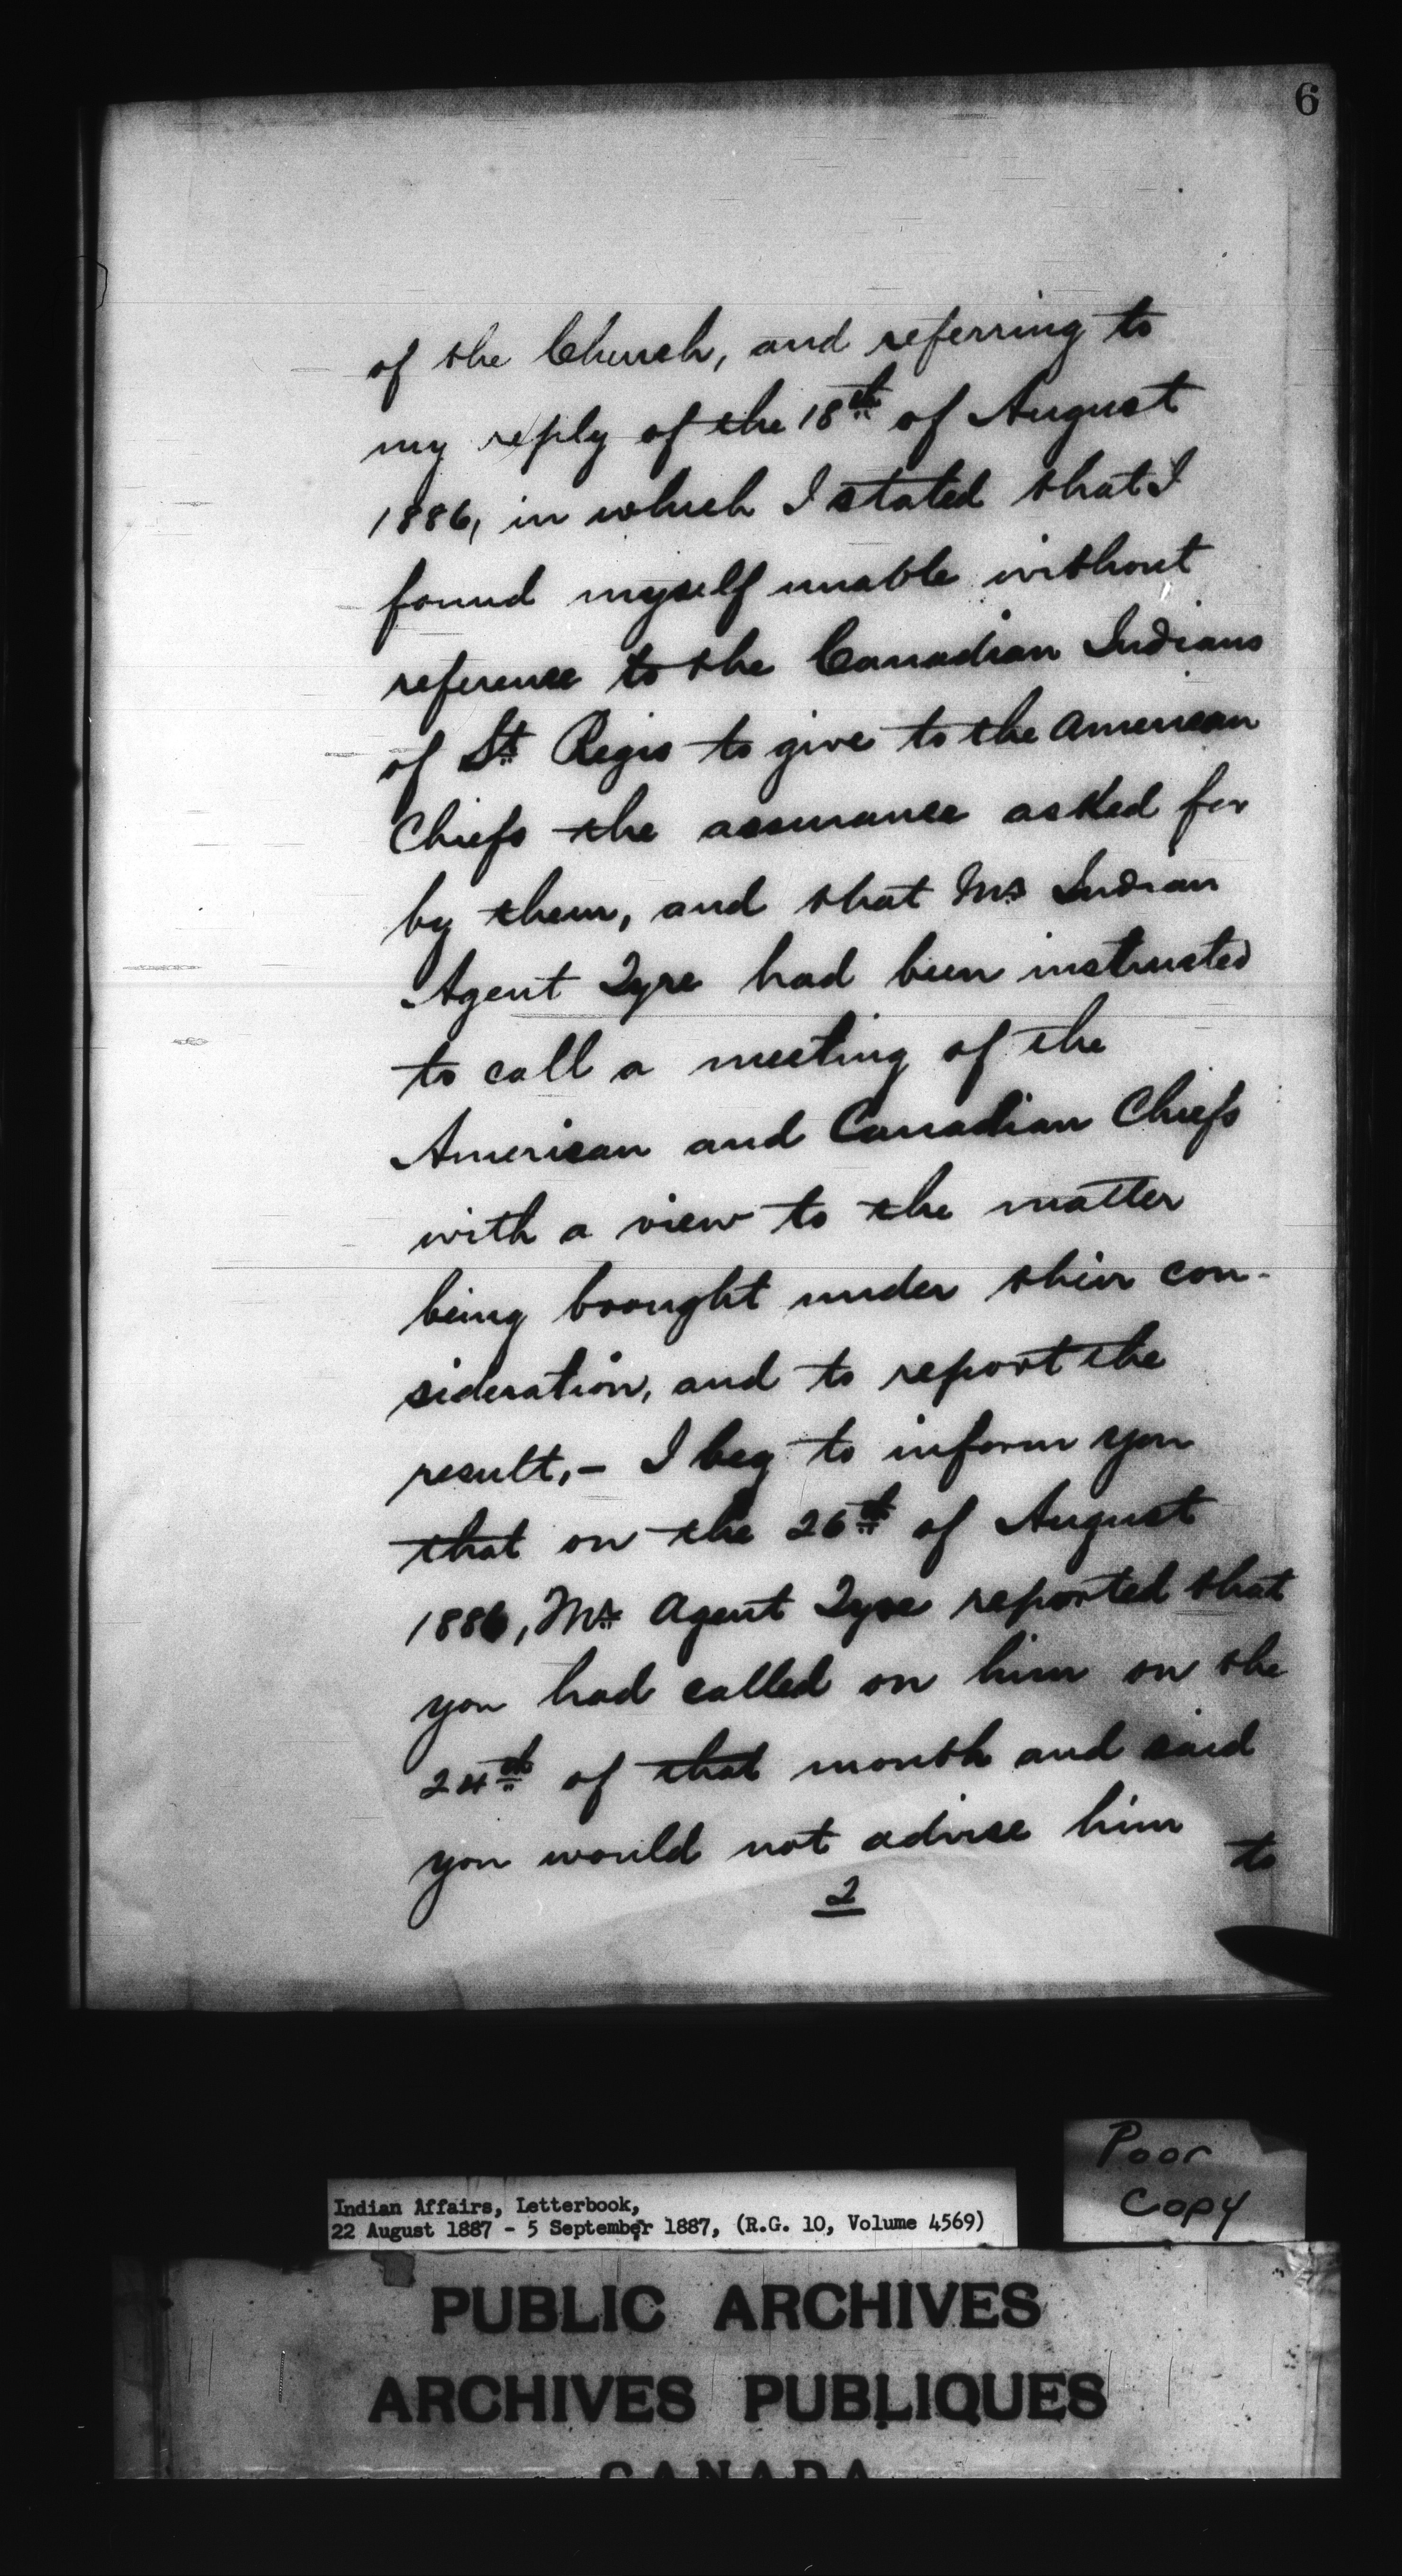 6
of the Church, and referring to
my reply of the 18th of August
1886, in which I stated that I
found myself unable without
reference to the Canadian Indians
of St. Regis to give to the American
Chiefs the assurance asked for
by them, and that Mr. Indian
Agent Tyre had been instructed
to call a meeting of the
American and Canadian Chiefs
with a view to the matter
being brought under their con-
sideration, and to report the
result, - I beg to inform you
that on the 26th of August
1886, Mr. Agent Tyre reported that
you had called on him on the
24th of that month and said
you would not advise him to
2
Poor
Copy
Indian Affairs, Letterbook,
22 August 1887 - 5 September 1887, (R.G. 10, Volume 4569)
PUBLIC ARCHIVES
ARCHIVES PUBLIQUES
CANADA